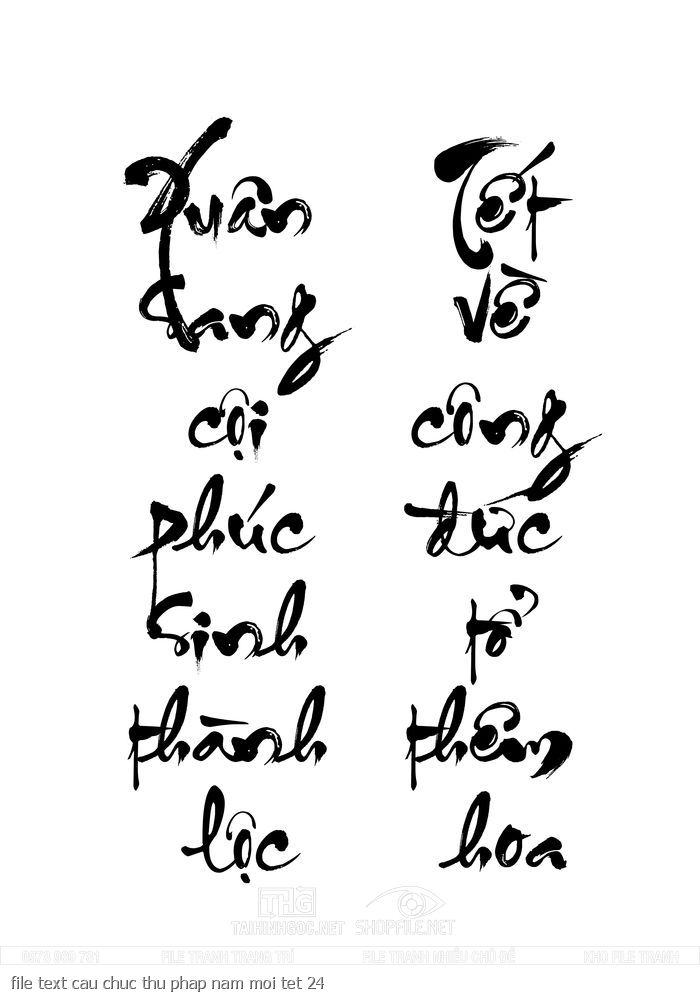 Xuân
sang
cội
phúc
sinh
thành
lộc
Tết
về
công
đức
tổ
thêm
hoa
THG
TAIHINHGOC.NET SHOPFILE.NET
FILE TRANH TRANG TRÍ FILE TRANH NHIỀU CHỦ ĐỀ KHO FILE TRANH
file text cau chuc thu phap nam moi tet 24